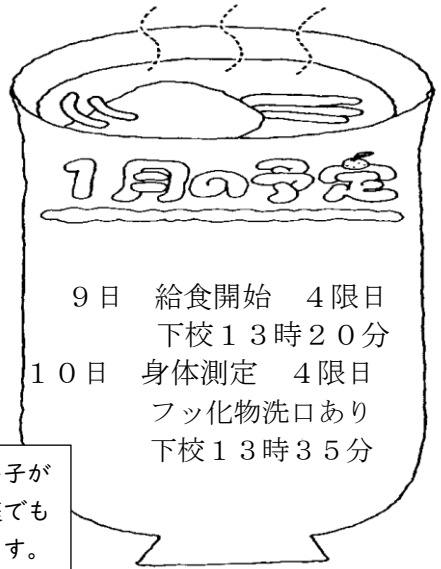 1月の予定
9日　給食開始　4限日
下校13時20分
10日　身体測定　4限日
フッ化物洗口あり
下校13時35分
子が
でも
す。